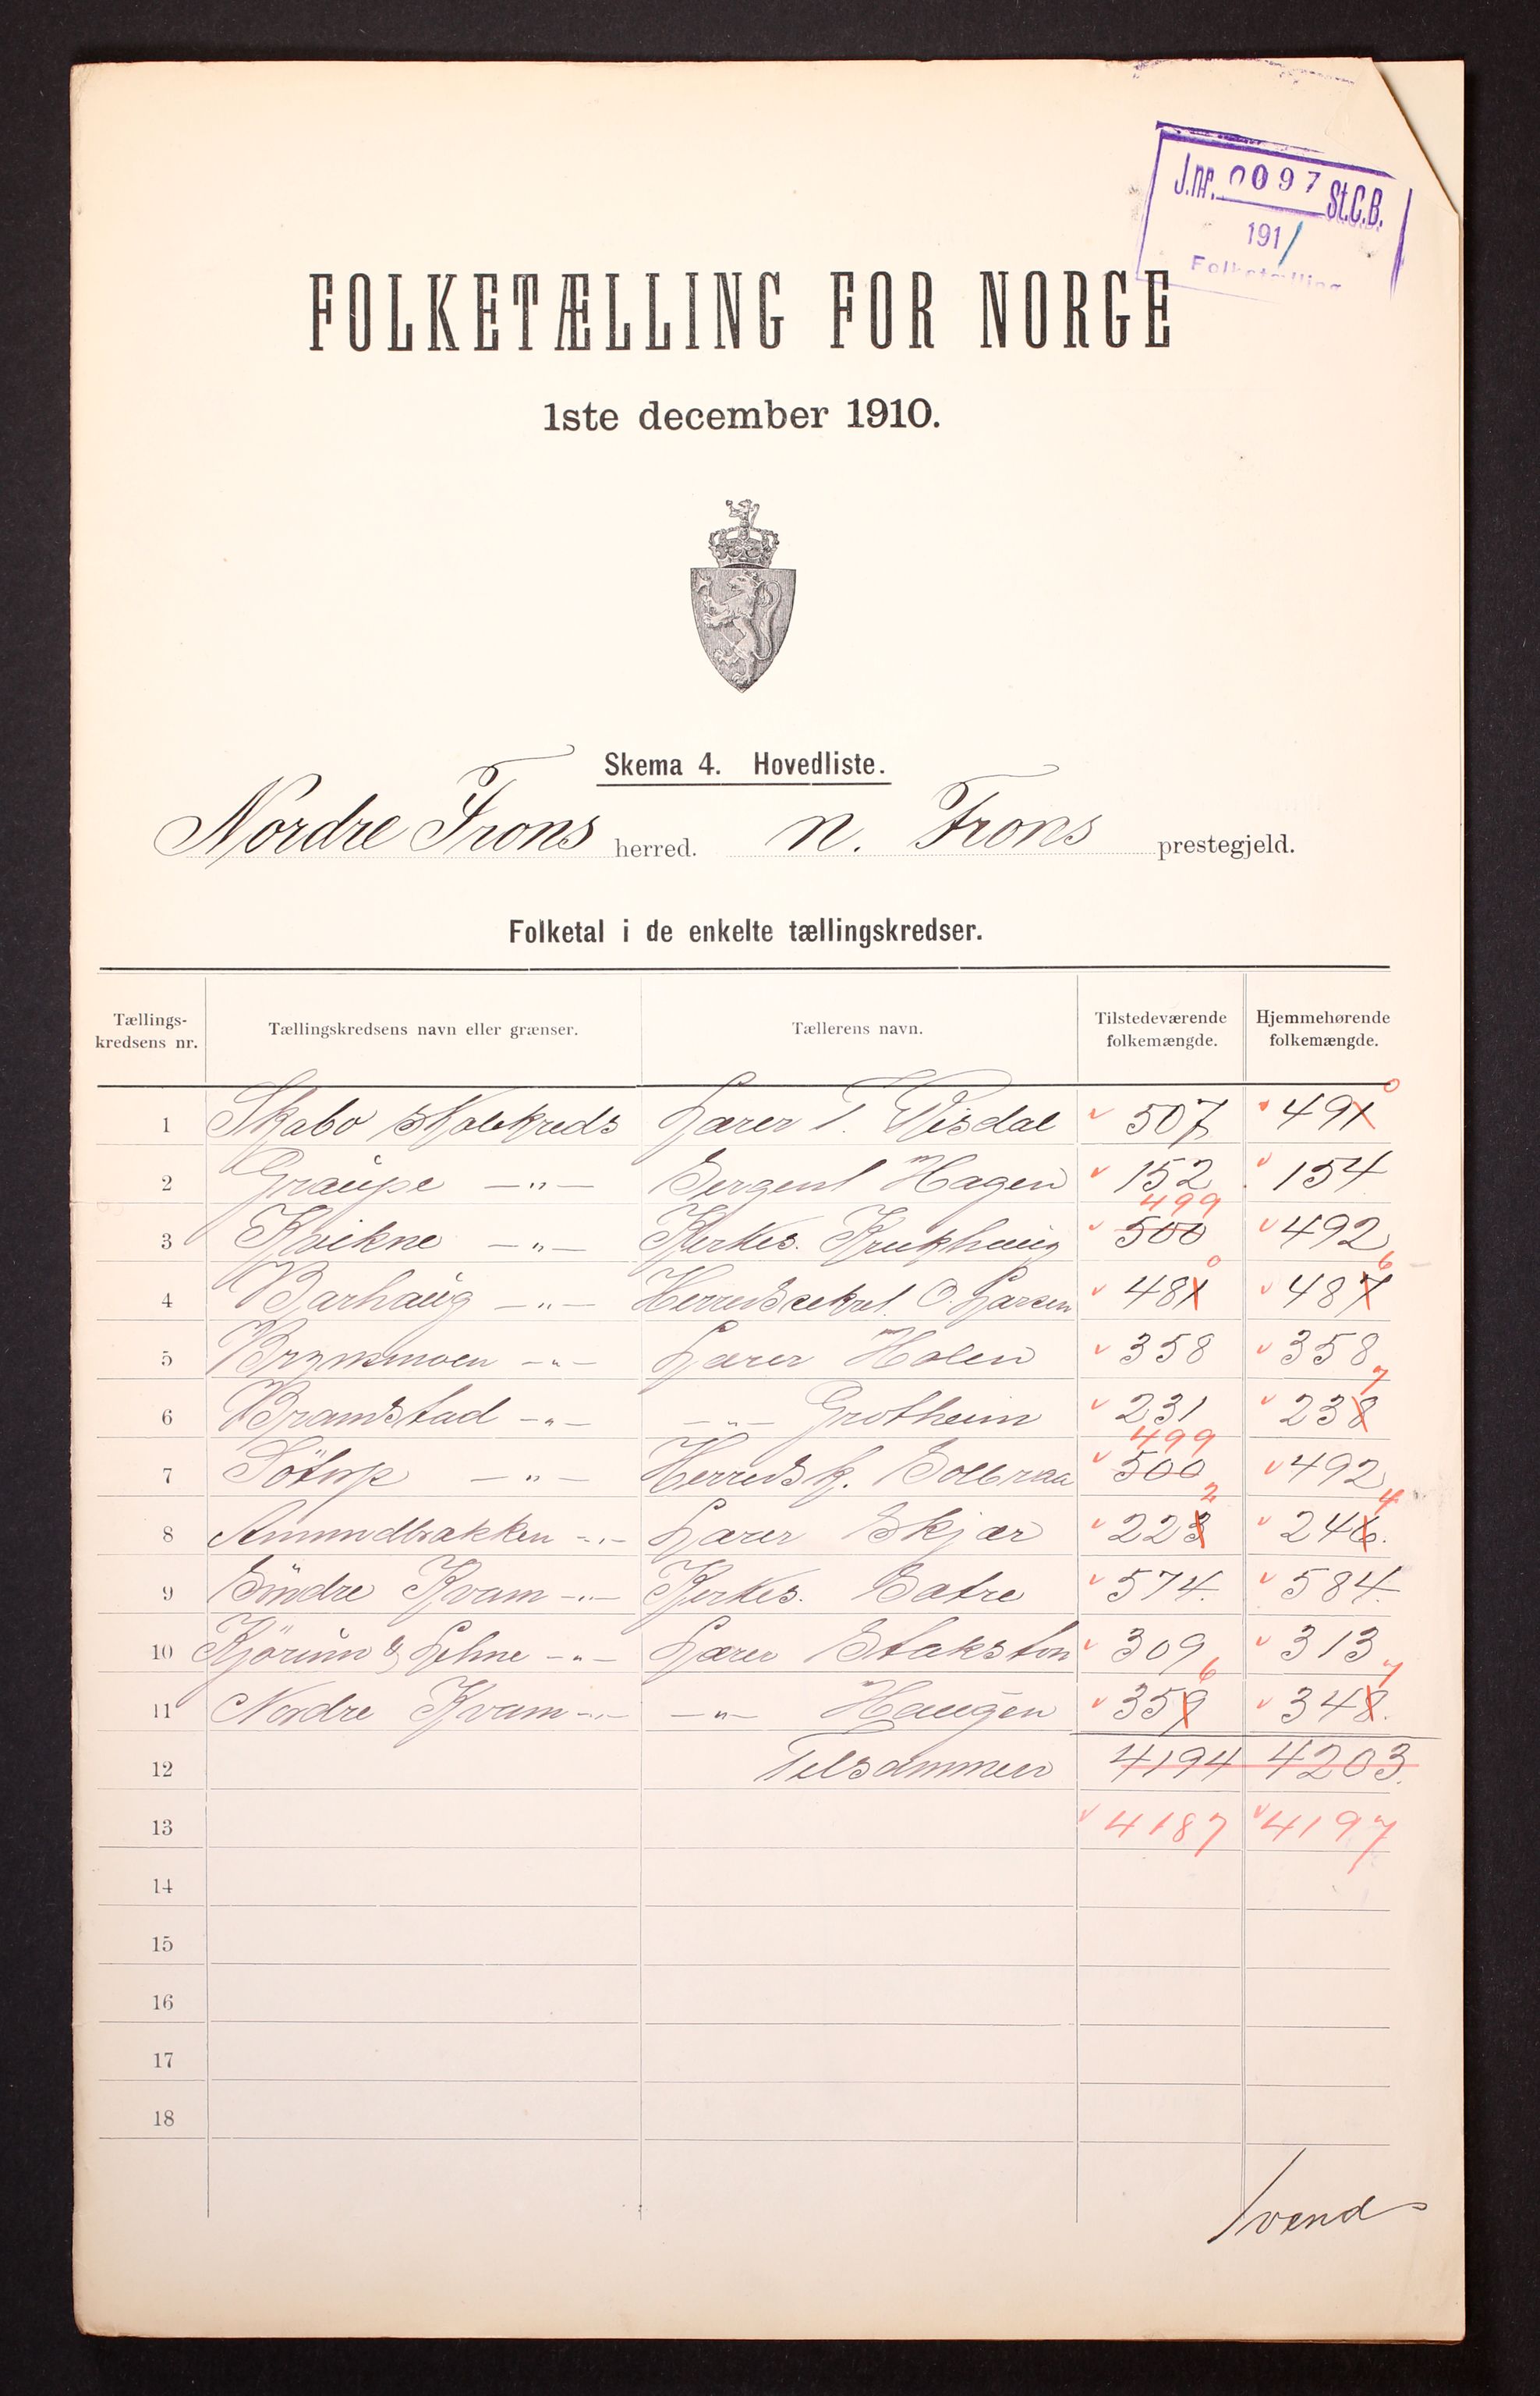 J.nr. 0097 St.C.B.
1911
Folketælling
FOLKETÆLLING FOR NORGE
1ste december 1910.
Skema 4. Hovedliste.
Nordre Frons herred. N. Frons prestegjeld.
Folketal i de enkelte tællingskredser.
Tællingskredsens nr. Tællingskredsens navn eller grænser. Tællerens navn. Tilstedeværende folkemængde. Hjemmehørende folkemængde.
1 Skabo Skolekreds Lærer T. Risdal 507 491 0
2 Graupe —"— Sergent Hagen 152 154
3 Kvikne —"— Kirkes. Krukhaug 500 499 492
4 Barhaug —"— Herredssekret. O. Larsen 481 0 487 6
5 Brynsmoen —"— Lærer Holen 358 358
6 Bramstad —"— —"— Grotheim 231 238 7
7 Södorp —"— Herredsk. Solbraa 500 499 492
8 Amundbakken —"— Lærer Skjær 223 2 246. 4
9 Söndre Kvam —"— Kirkes. Sætre 574. 584.
10 Kjörum & —"— Lærer Stakston 309 313
11 Nordre Kvam —"— —"— Haugen 359 6 348. 7
12 Tilsammen 4194 4203.
13 4187 4197
14
15
16
17
18
vend